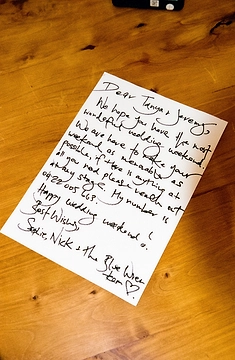 Dear Tanya + Jeremy,
We hope you have the most
wonderful wedding weekend.
We are here to make your
weekend as memorable as
possible, if there is anything at
all you need please reach out
at any stage. My number is
0422 005 63.
Happy wedding weekend!
Best Wishes,
Sophie, Nick + The Blue Wren
team